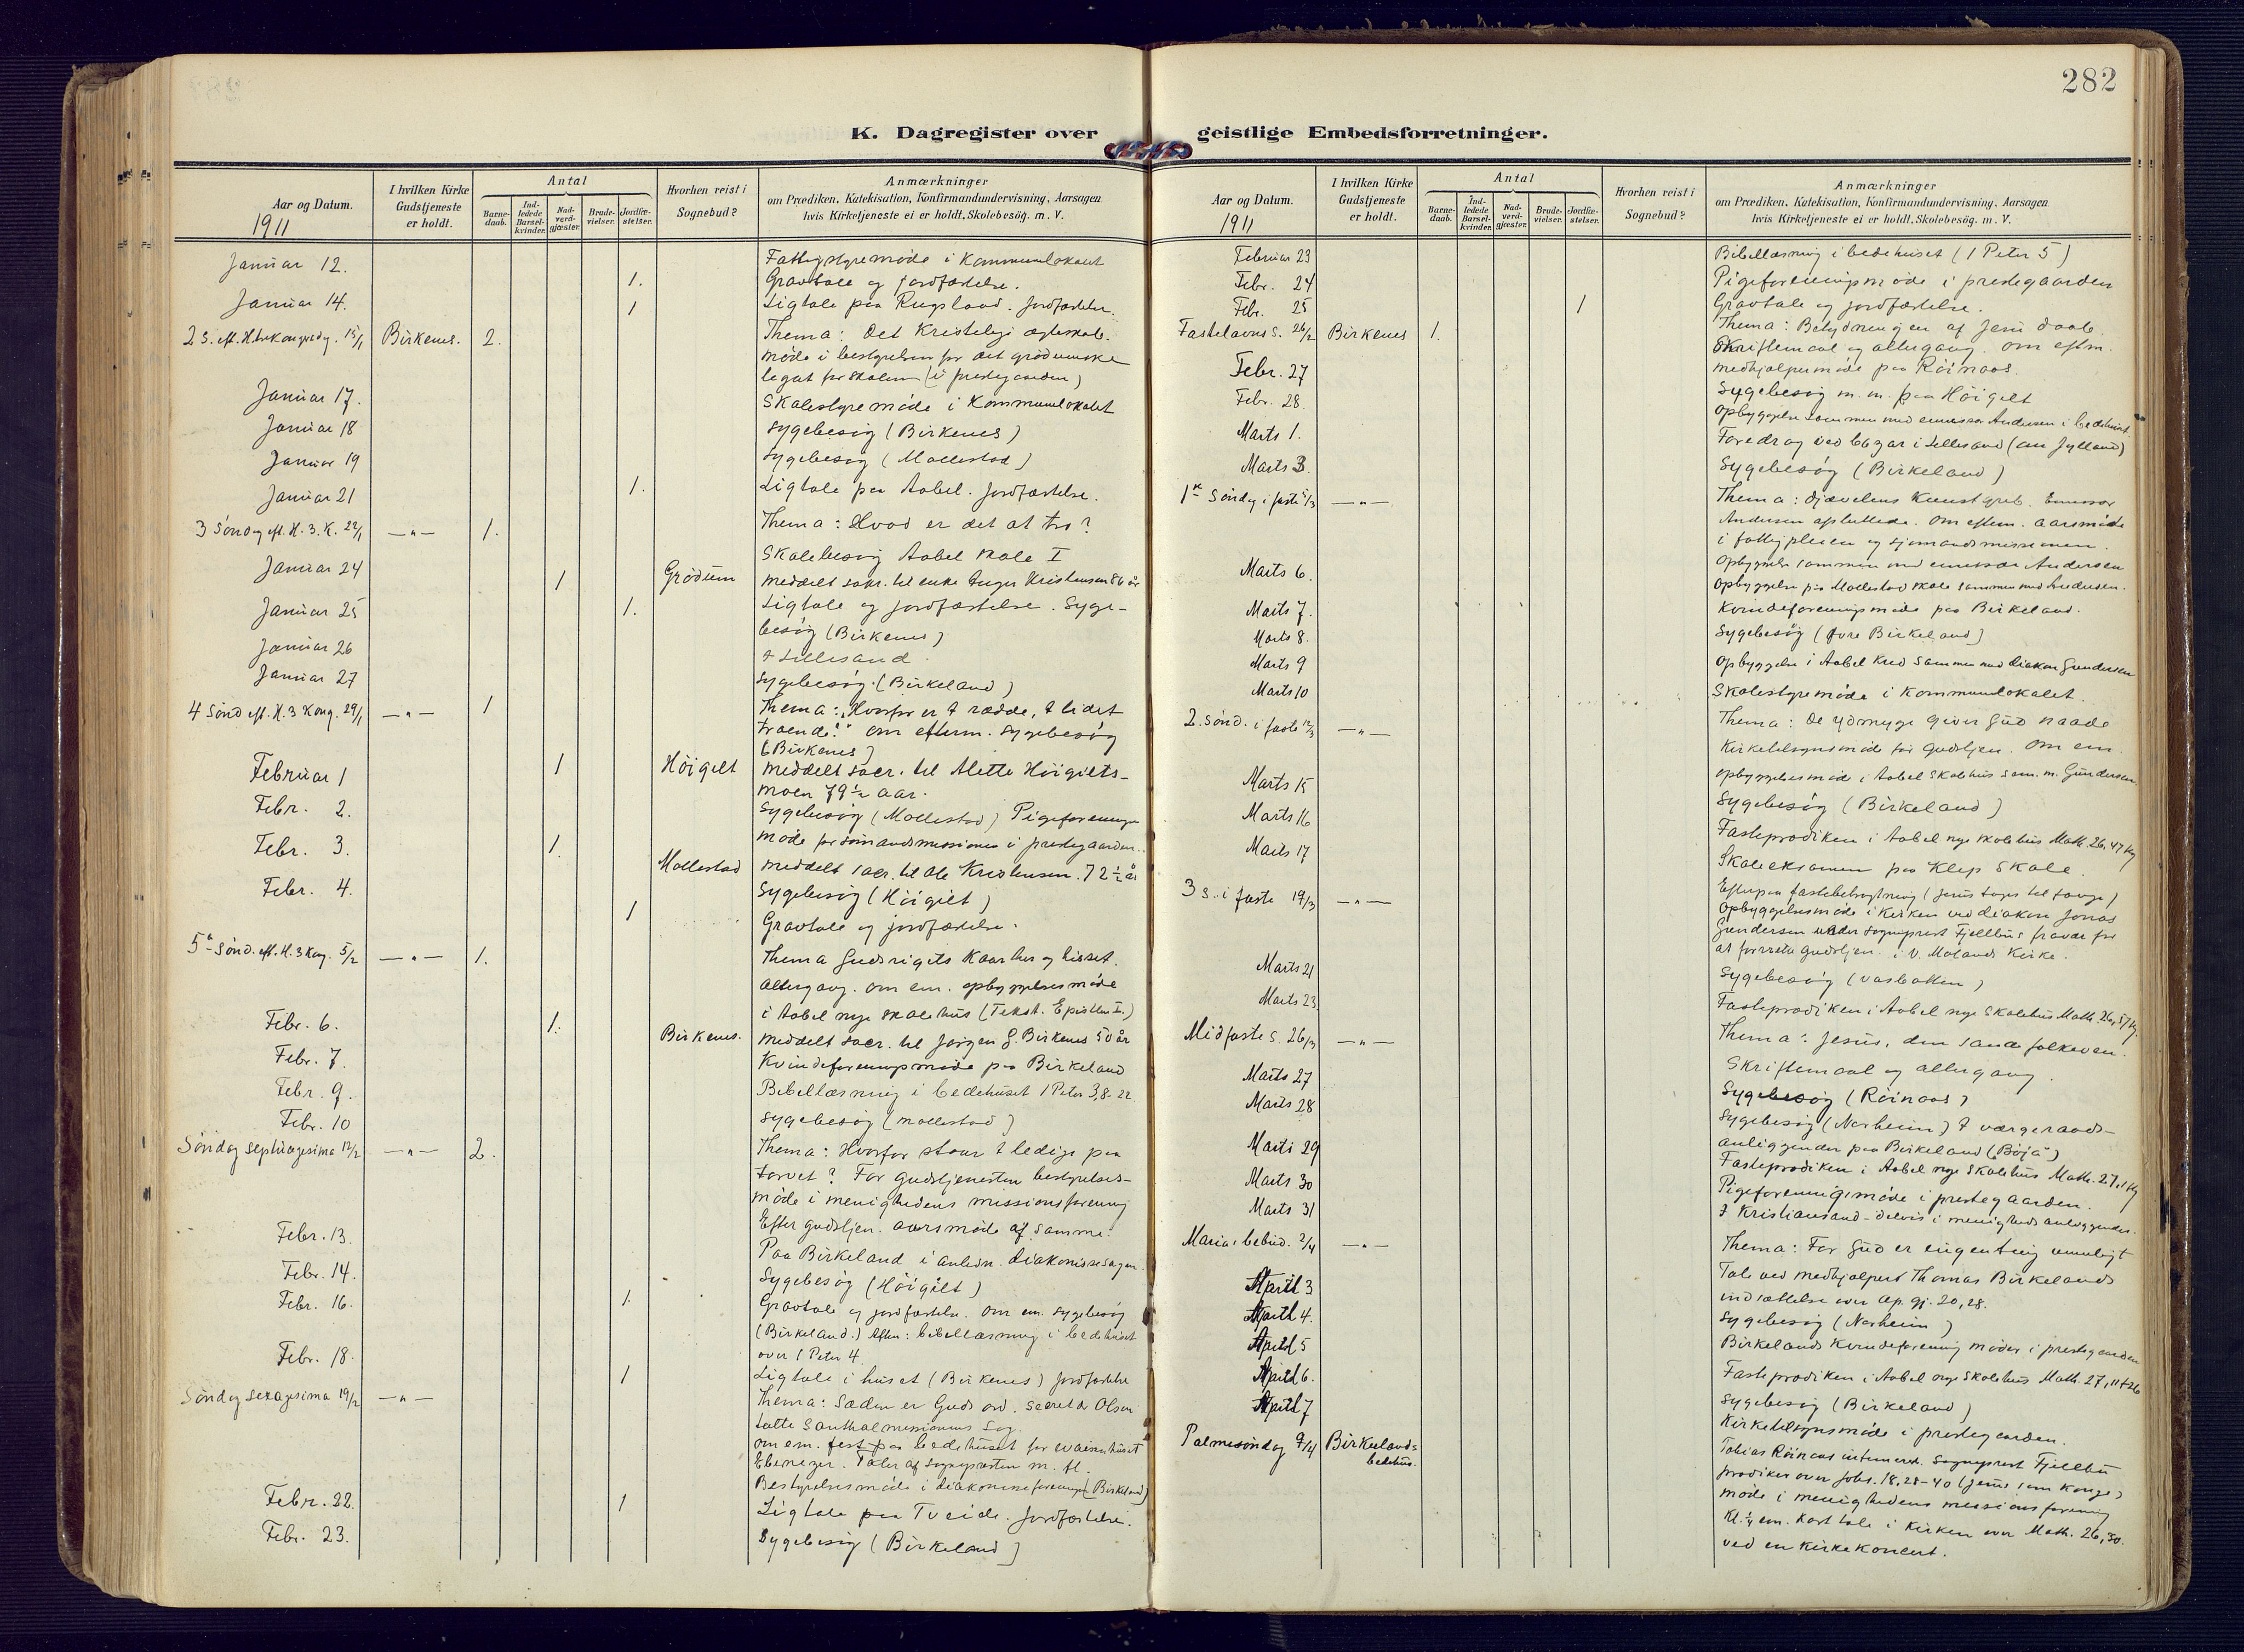 282
K. Dagregister over geistlige Embedsforretninger.
Aar og Datum. 1911
I hvilken Kirke Gudstjeneste er holdt.
Antal
Barne-daab.
Ind-ledede Barsel-kvinder.
Nad-verd-gjæster.
Brude-vielser.
Jordfæ-stelser.
Hvorhen reist i Sognebud?
Anmærkninger
om Prædiken, Katekisation, Konfirmandundervisning, Aarsagen
hvis Kirketjeneste ei er holdt, Skolebesøg. m. V.
Januar 12. Fattigstyremøde i Kommunelokalet
1. Gravtale og jordfæstelse.
Januar 14. 1 Ligtale paa Rugsland. Jordfæstelse.
2 S. eft. H.trekongersdg. 15/1 Birkenes. 2. Thema: Det Kristelige ægteskab.
møde i bestyrelsen for det grødumske
legat for skolen (i prestegaarden)
Januar 17. Skolestyremøde i Kommunelokalet
Januar 18 Sygebesøg (Birkenes)
Januar 19 Sygebesøg (Mollestad)
Januar 21 1. Ligtale paa Aabel. Jordfæstelse.
3 Søndag eft. H. 3. K. 22/1 —"— 1. Thema: Hvad er det at tro?
Januar 24 Skolebesøg Aabel skole I
1 Grødum meddelt sakr. til enke Inger Kristensen 86 år
Januar 25 1. Ligtale og jordfæstelse. Syge-
besøg (Birkenes)
Januar 26 I Lillesand.
Januar 27 Sygebesøg. (Birkeland)
4 Sønd eft. H. 3 Kong. 29/1 —"— 1 Thema: "Hvorfor er I rædde, I lidet
troende?" Om efterm. sygebesøg
(Birkenes)
Februar 1 1 Høigilt meddelt sacr. til Alette Høigilts-
moen 79 1/2 aar.
Febr. 2. Sygebesøg (Mollestad) Pigeforenings
møde for sømandsmissionen i prestegaarden.
Febr. 3. 1. Mollestad meddelt sacr. til Ole Kristensen. 72 1/2 år
Febr. 4. Sygebesøg (Høigilt)
1 Gravtale og jordfæstelse.
5te Sønd. eft. H. 3 Kong. 5/2 —"— 1. Thema Gudsrigets Kaar her og hisset.
Altergang. Om em. opbyggelsesmøde
i Aabel nye skolehus (Tekst. Epistlen I.)
Febr. 6. 1. Birkenes. meddelt sacr. til Jørgen G. Birkenes 50 år
Febr. 7. Kvindeforeningsmøde paa Birkeland
Febr. 9. Bibellæsning i bedehuset 1 Peter 3,8-22
Febr. 10 Sygebesøg (Mollestad)
Søndag septuagesima 12/2 —"— 2. Thema: Hvorfor staar I ledige paa
torvet? Før gudstjenesten bestyrelses-
møde i menighedens missionsforening
Efter gudstjen. aarsmøde af samme.
Febr. 13. Paa Birkeland i anledn. diakonissesagen.
Febr. 14. Sygebesøg (Høigilt)
Febr. 16. 1. Gravtale og jordfæstelse. Om em. sygebesøg
(Birkeland.) Aften: bibellæsning i bedehuset
over 1 Peter 4.
Febr. 18. 1 Ligtale i huset (Birkenes) Jordfæstelse
Søndag sexagesima 19/2 —"— Thema: Sæden er Guds ord. Secretær Olsen
talte Santhalmissionens Sag.
Om em. fest paa bedehuset for waisenhuset
Ebenezer. Taler af sognepresten m. fl.
Bestyrelsesmøde i diakonisseforeningen (Birkeland)
Febr. 22. 1 Ligtale paa Tveide. Jordfæstelse.
Febr. 23. Sygebesøg (Birkeland)
Aar og Datum. 1911
I hvilken Kirke Gudstjeneste er holdt.
Antal
Barne-daab.
Ind-ledede Barsel-kvinder.
Nad-verd-gjæster.
Brude-vielser.
Jordfæ-stelser.
Hvorhen reist i Sognebud?
Anmærkninger
om Prædiken, Katekisation, Konfirmandundervisning, Aarsagen
hvis Kirketjeneste ei er holdt, Skolebesøg. m. V.
Februar 23 Bibellæsning i bedehuset (1 Peter 5)
Febr. 24 Pigeforeningsmøde i prestegaarden
Febr. 25 1 Gravtale og jordfæstelse.
Fastelavns S. 26/2 Birkenes 1. Thema: Betydningen af Jesu daab.
Skriftemaal og altergang. Om eftm.
medhjælpermøde paa Røinaas.
Febr. 27 Sygebesøg m. m. paa Høigilt
Febr. 28. Opbyggelse sammen med emissær Andersen i bedehuset
Marts 1. Foredrag ved bazar i Lillesand (om Jylland)
Marts 3. Sygebesøg (Birkeland)
1ste Søndag i faste 5/3 —"— Thema: Djævelens Kunstgreb. Emissær
Andersen afsluttede. Om eftem. aarsmøde
i fattigpleien og sjømandsmissionen.
Marts 6. Opbyggelse sammen med emissær Andersen
Opbyggelse paa Mollestad skole sammen med Andersen.
Marts 7. Kvindeforeningsmøde paa Birkeland.
Marts 8. Sygebesøg (Øvre Birkeland)
Marts 9 Opbyggelse i Aabel Kred sammen med diakon Gundersen
Marts 10 Skolestyremøde i Kommunelokalet.
2. Sønd. i faste 12/3 —"— Thema: De ydmyge giver Gud naade
Kirketilsynsmøde før gudstjen. Om em.
opbyggelsesmøde i Aabel Skolehus sam. m. Gundersen
Marts 15 Sygebesøg (Birkeland)
Marts 16 Fasteprædiken i Aabel nye skolehus Math. 26,47 flg
Marts 17 Skoleeksamen paa Klep Skole.
3 S. i faste 19/3 —"— Efterpaa fastebetragtning (Jesus tages til fange)
Opbyggelsesmøde i kirken ved diakon Jonas
Gundersen under sogneprest Fjellbus fravær for
at forrette gudstjen. i V. Molands Kirke.
Marts 21 Sygebesøg (Vasbotten)
Marts 23 Fasteprædiken i Aabel nye Skolehus Math. 26,57 flg.
Midfaste S. 26/3 —"— Thema: Jesus, den sande folkeven.
Skriftemaal og altergang.
Marts 27 Sygebesøg (Røinaas)
Marts 28 Sygebesøg (Norheim) I værgeraads-
anliggender paa Birkeland (Bøjå)
Marts 29 Fasteprædiken i Aabel nye Skolehus Math. 27,1 flg
Marts 30 Pigeforeningsmøde i prestegaarden.
Marts 31 I Kristiansand - delvis i menighedsanliggender.
Mariæ bebud. 2/4 —"— Thema: For Gud er ingen ting umuligt
Tale ved medhjælper Thomas Birkelands
indsættelse over Ap. gj. 20,28.
April 3 Sygebesøg (Norheim)
April 4. Birkelands Kvindeforening møder i prestegaarden
April 5 Fasteprædiken i Aabel nye Skolehus Math. 27,11-26
April 6. Sygebesøg (Birkeland)
April 7 Kirketilsynsmøde i prestegaarden.
Palmesøndag 9/4 Birkelands bedehus. Tobias Røinaas intimered. Sogneprest Fjellbu
prædiker over Johs. 18,28-40 (Jesus som Konge)
møde i menighedens missionsforening
Kort tale i Kirken over Math. 26,30.
ved en kirkekoncert.